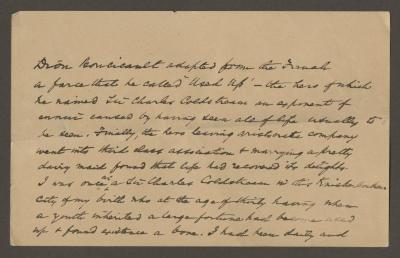 Dion Boucicault adapted from the French
a farce that he called "Used Up" – the hero of which
he named Sir Charles Coldstream an exponent of
ennui caused by having seen all of life usually to
be seen. Finally, the hero leaving aristocratic company
went into third class association & marrying a pretty
dairy maid found that life had recovered its delights.
I was once as a Sir Charles Coldstream in this Knickerbocker
city of my birth who at the age of thirty having when
a youth inherited a large fortune had become used
up & found existence a bore. I had been daily and